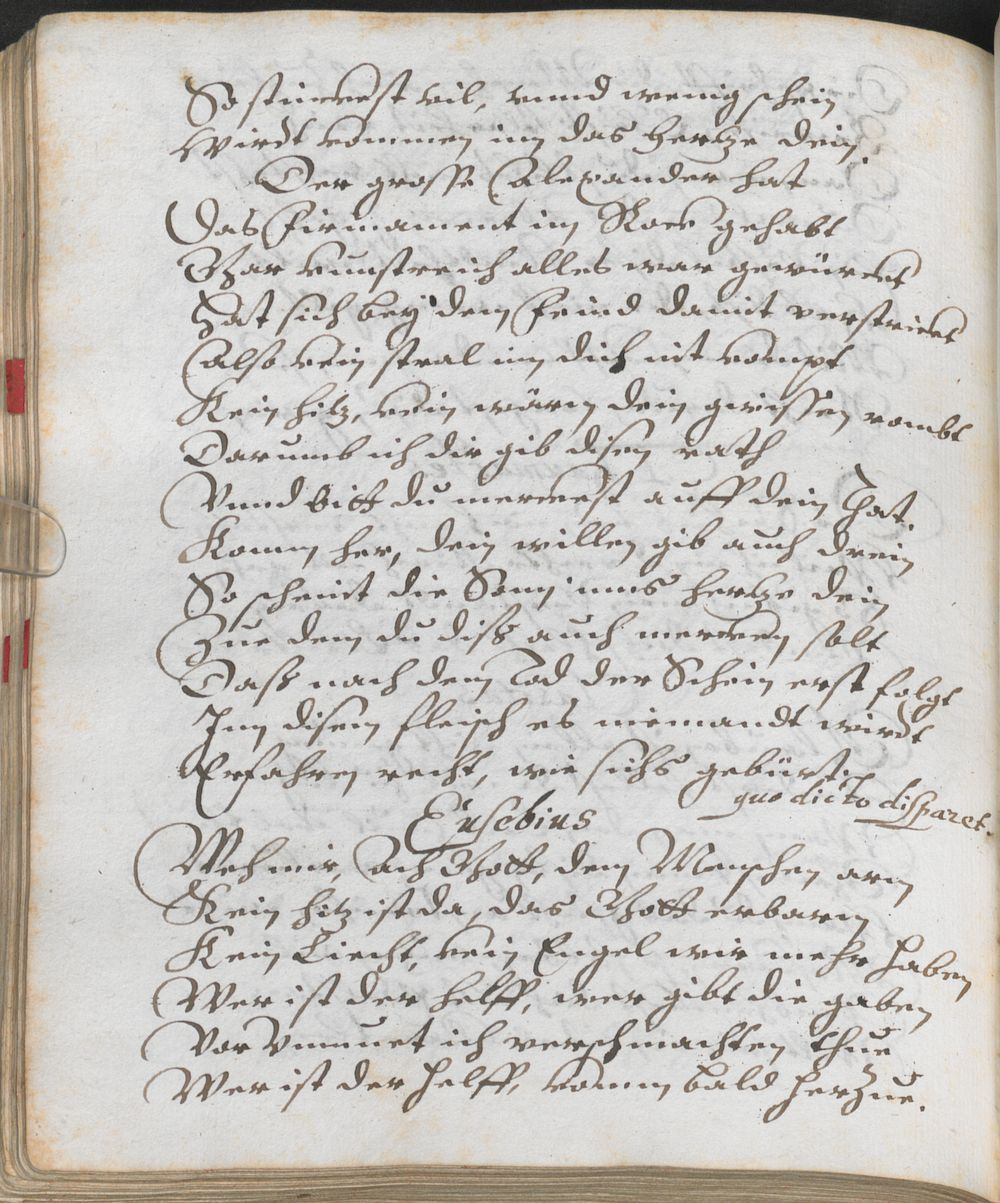 So stinckest vil, vnnd wenig schein
Wirdt kommen inn das hertze dein.
Der grosse Alexander hat
Das Firmament im Rock gehabt
Gar kunstreich alles war gewürckt
Hat sich bey dem Feind damit verstrickt
Also kein stral inn dich nit kompt
Kein hitz, kein wärm dein gwissen rombt
Darumb ich dir gib disen rath
Vnnd bitt du merckest auff dein That.
Komm her, dein willen gib auch drein
So scheint die Sonn inns hertze dein
Zue dem du diß auch mercken solt
Daß nach dem Tod der Schein erst folgt
Inn disem fleisch es niemandt wirdt
Erfahren recht, wie sichs gebürt.
quo dicto disparet.
Eusebius
Weh mir, Ach Gott, dem Menschen arm
Kein hitz ist da, das Gott erbarm
Kein Liecht, kein Engel wir mehr haben
Wer ist der helff, wer gibt die gaben
Vor Vnmuet ich verschmachten thue
Wer ist der helff, komm bald herzue.